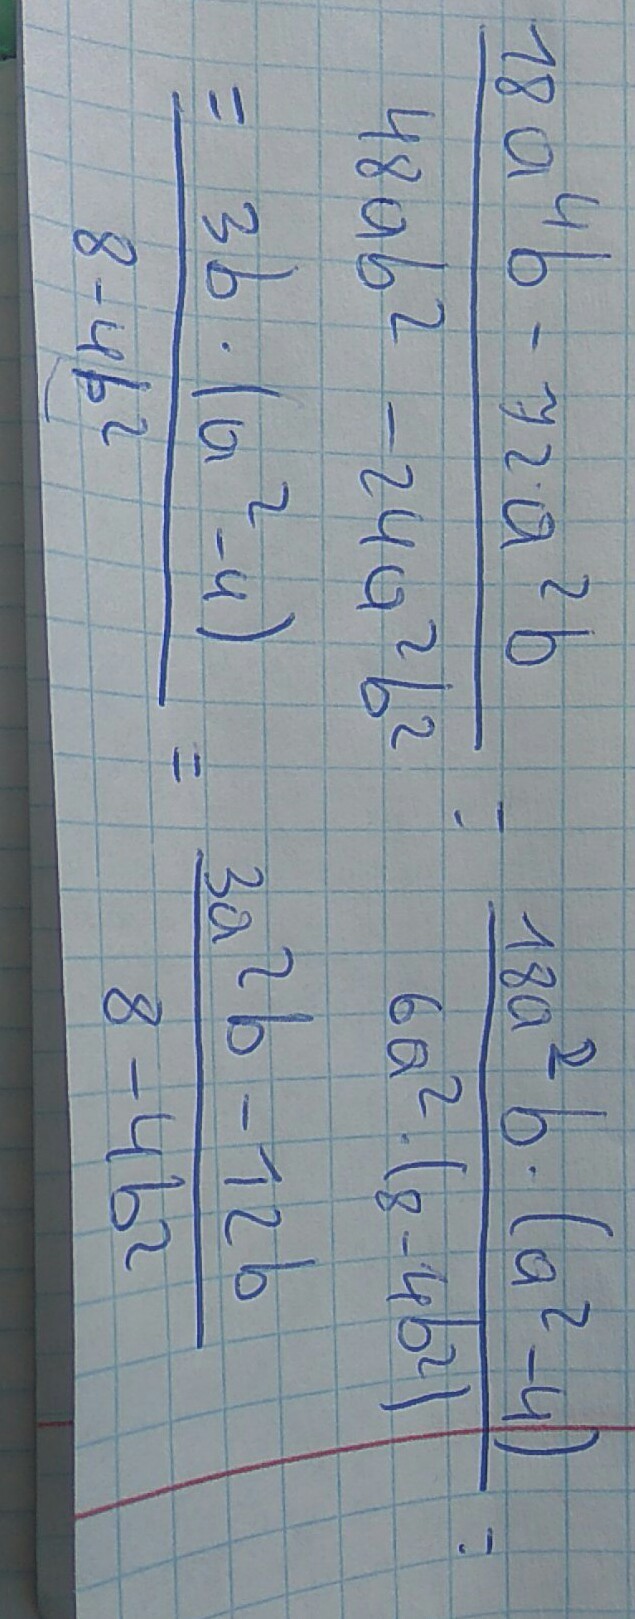 18a⁴b - 72a²b / 48ab² - 24a²b² = 18a²b · (a² - 4) / 6a² · (8 - 4b²) =
= 3b · (a² - 4) / 8 - 4b² = 3a²b - 12b / 8 - 4b²